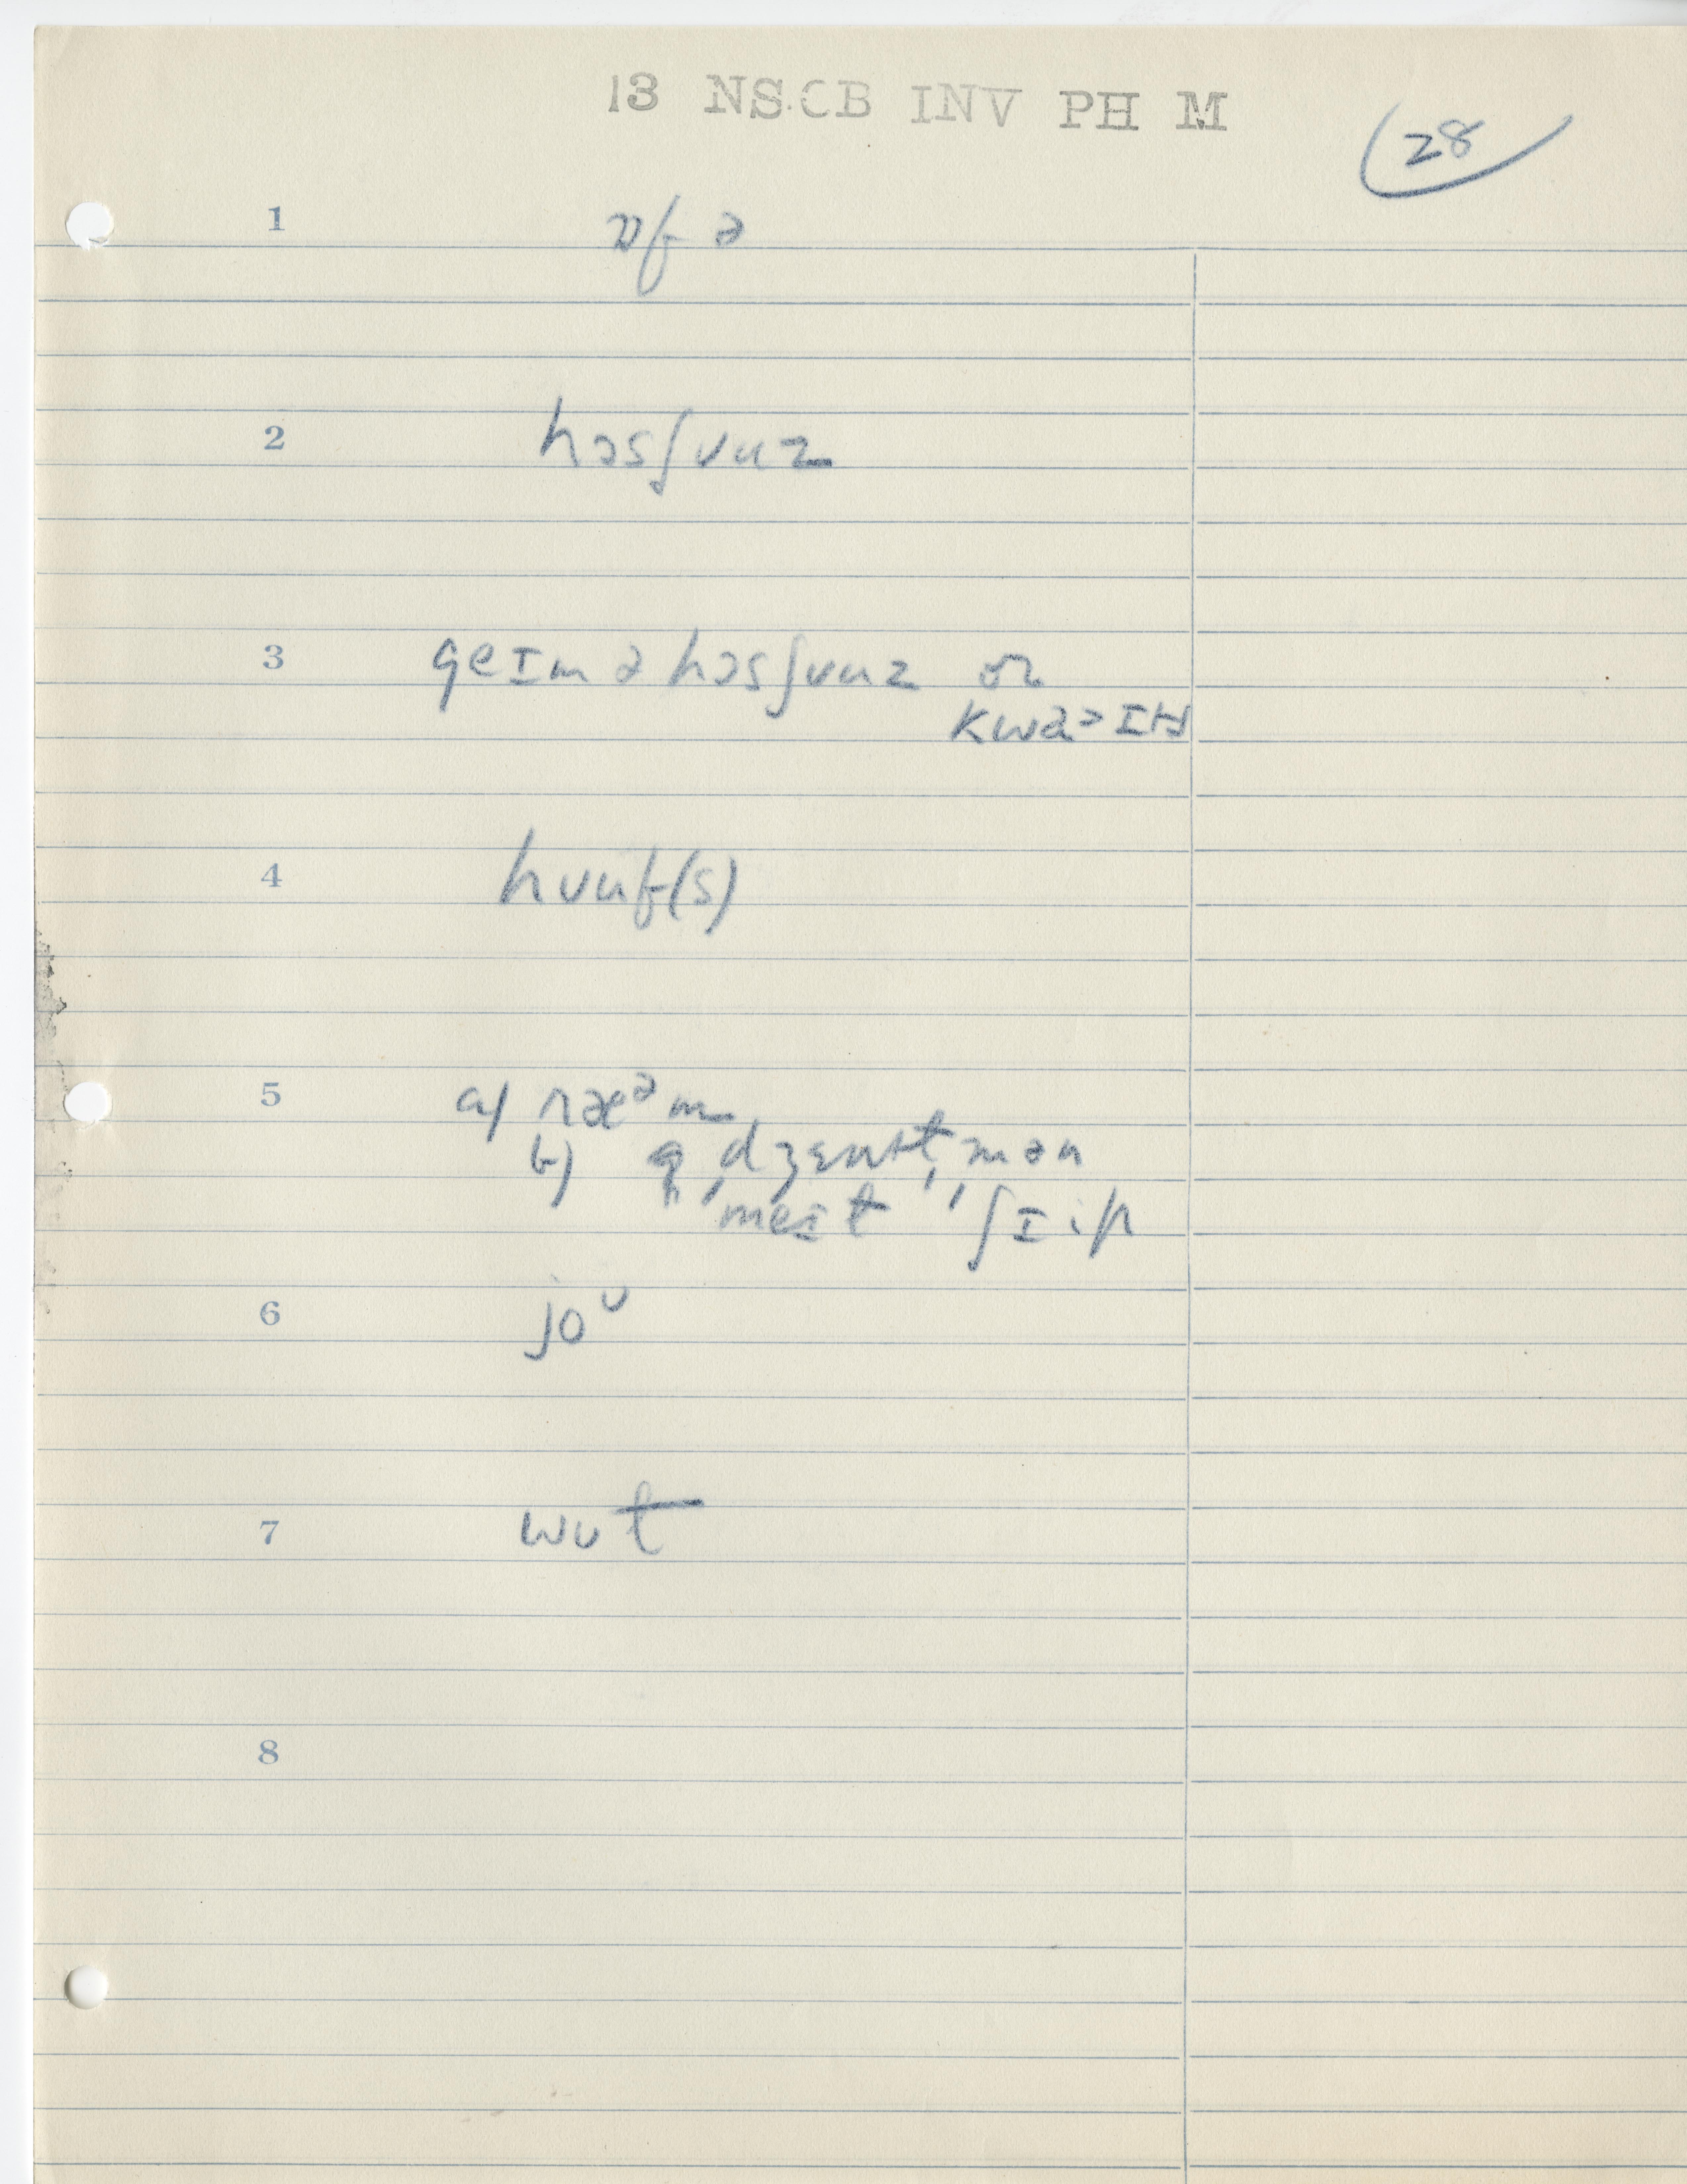 13 NS.CB INV PH M
28
1 ɒf ə
2 hɔsʃʊuz
3 geɪm ə hɔsʃʊuz oɹ
kwəɔɪts
4 hʊuf(s)
5 a) ræᵊm
b) dʒɛntmən
meɪt ʃɪip
6 joᶷ
7 wʊt
8